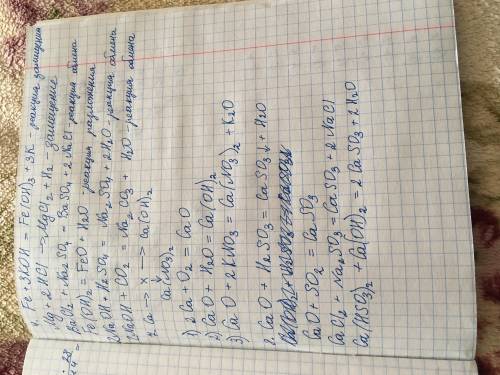 1. Fe + 3KOH = Fe(OH)3 + 3K - реакция замещения
Mg + 2HCl → MgCl2 + H2 - замещение
BaCl2 + Na2SO4 = BaSO4 + 2NaCl реакция обмена
Fe(OH)2 = FeO + H2O реакция разложения
2NaOH + H2SO4 = Na2SO4 + 2H2O - реакция обмена
2NaOH + CO2 = Na2CO3 + H2O - реакция обмена
2. Ca → x → Ca(OH)2
↓
Ca(NO3)2
1) 2Ca + O2 = CaO
2) CaO + H2O = Ca(OH)2
3) CaO + 2KNO3 = Ca(NO3)2 + K2O
2. CaO + H2SO3 = CaSO3↓ + H2O
CaO + SO2 = CaSO3
CaCl2 + Na2SO3 = CaSO3 + 2NaCl
Ca(HSO3)2 + Ca(OH)2 = 2CaSO3 + 2H2O